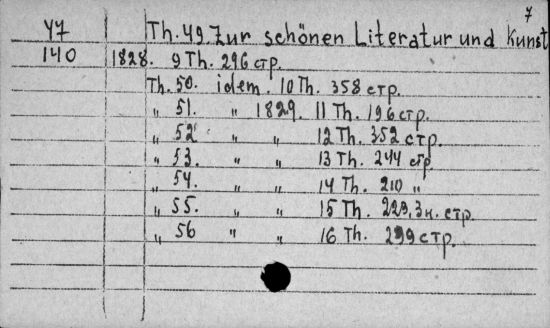 7
47 Th. 49 Zur schönen Literatur und Kunst
140 1828. 9 Th. 296 стр.
Th. 50. idem. 10 Th. 358 стр.
„ 51. „ 1829. 11 Th. 196 стр.
„ 52 „ „ 12 Th. 352 стр.
„ 53. „ „ 13 Th. 244 стр
„ 54. „ „ 14 Th. 210 „
„ 55. „ „ 15 Th. 229, 3 н. стр.
„ 56 „ „ 16 Th. 299 стр.